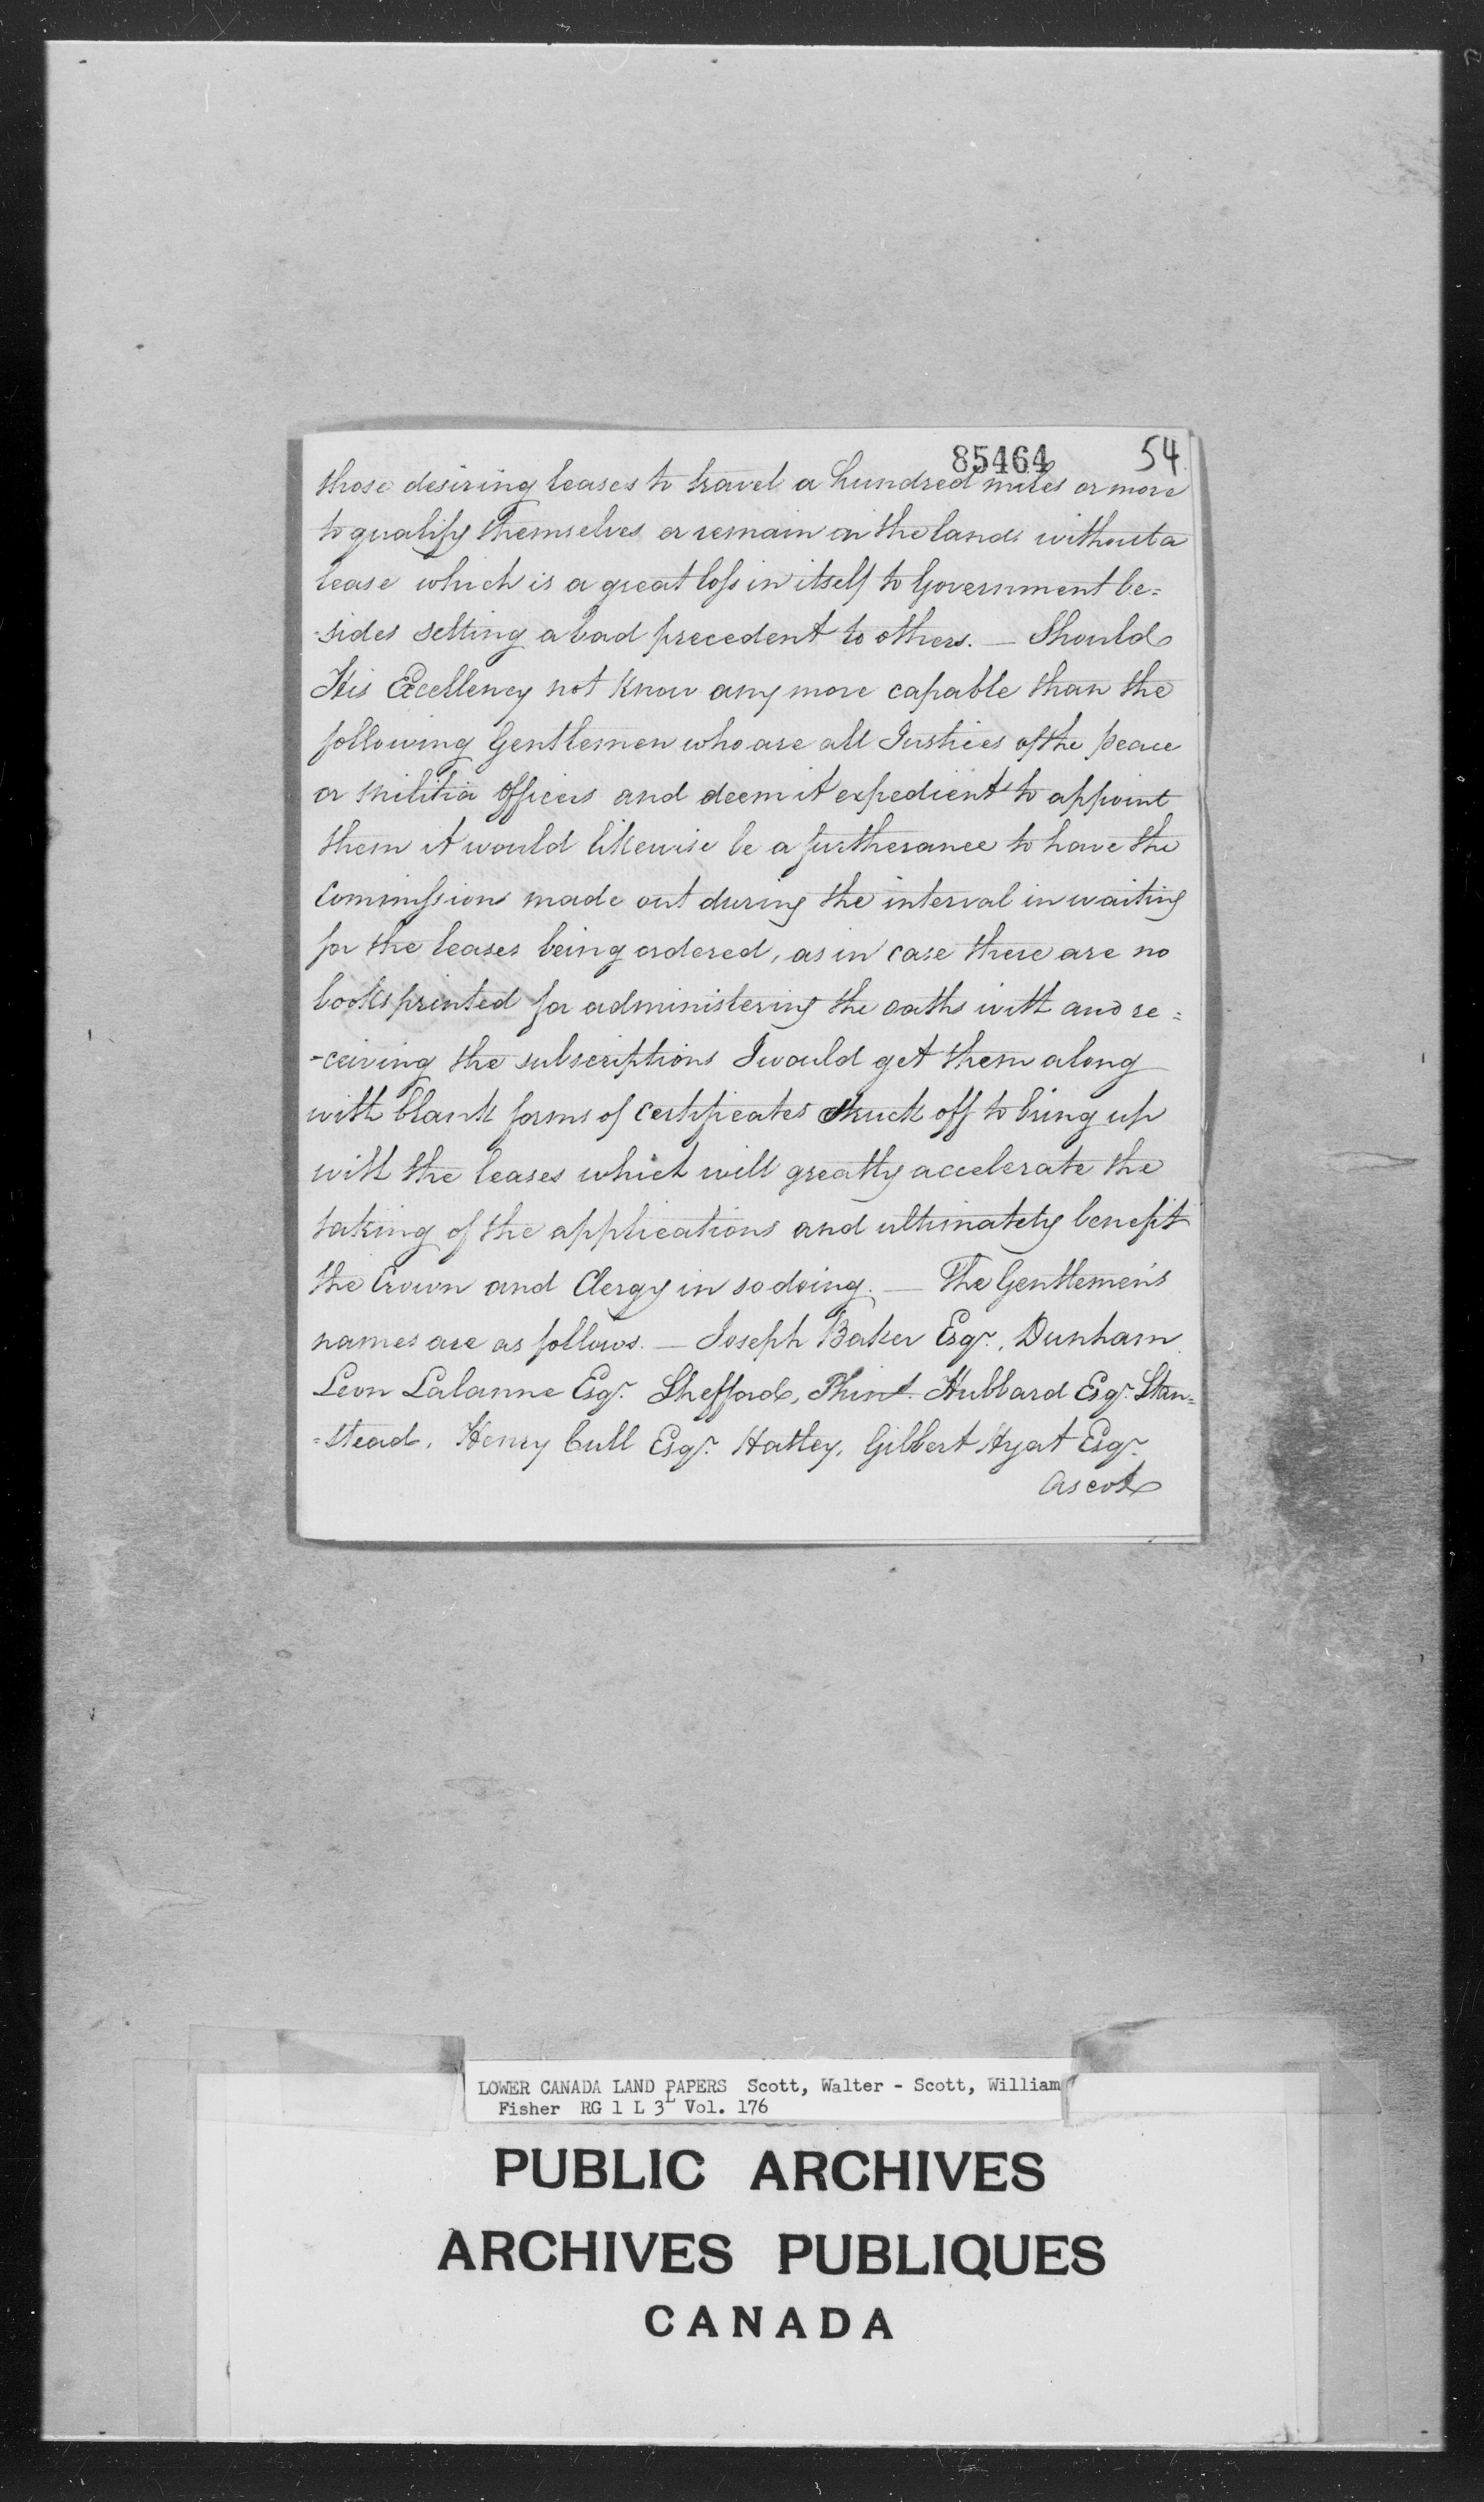 85464 54
those desiring leases to travel a hundred miles or more
to qualify themselves or remain on the lands without a
lease which is a great loss in itself to Government be=
-sides setting a bad precedent to others. — Should
His Excellency not know any more capable than the
following Gentlemen who are all Justices of the peace
or Militia Officers and deem it expedient to appoint
them it would likewise be a furtherance to have the
Commissions made out during the interval in waiting
for the leases being ordered, as in case there are no
books printed for administering the oaths with and re=
-ceiving the subscriptions I would get them along
with blank forms of Certificates struck off to bring up
with the leases which will greatly accelerate the
taking of the applications and ultimately benefit
the Crown and Clergy in so doing. — The Gentlemen's
names are as follows. — Joseph Baker Esqr., Dunham.
Leon Lalanne Esqr. Shefford, Hubbard Esqr. Stan=
=stead. Henry Cull Esqr. Hatley, Gilbert Hyat Esqr.
Ascot
LOWER CANADA LAND PAPERS Scott, Walter - Scott, William
Fisher RG 1 L 3L Vol. 176
PUBLIC ARCHIVES
ARCHIVES PUBLIQUES
CANADA